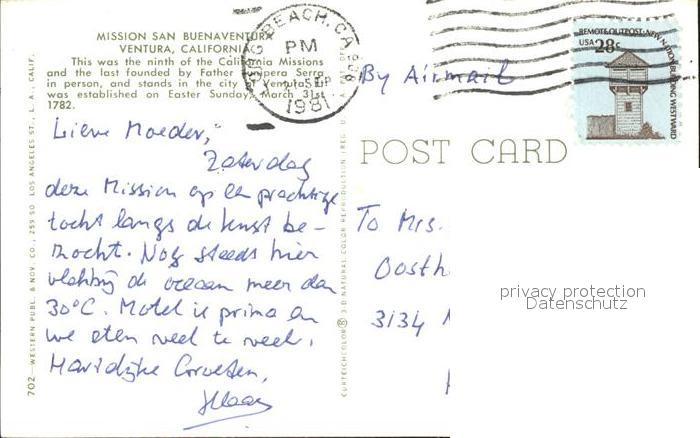 MISSION SAN BUENAVENTURA
VENTURA, CALIFORNIA
This was the ninth of the California Missions
and the last founded by Father Junipero Serra
in person, and stands in the city of Ventura. It
was established on Easter Sunday, March 31st
1782.
Lieve Moeder,
Zaterdag
deze Mission op een prachtige
tocht langs de kust be-
zocht. Nog steeds hier
vlakbij de oceaan meer dan
30°C. Motel is prima en
we eten veel te veel.
Hartelijke Groeten,
702—WESTERN PUBL. & NOV. CO., 259 SO. LOS ANGELES ST., L. A., CALIF.
CURTEICHCOLOR® 3-D NATURAL COLOR REPRODUCTION
BEACH, CA
PM
SEP
1981
908
REMOTE OUTPOST·NEW NATION BUILDING WESTWARD
USA 28c
By Airmail
POST CARD
To Mrs.
Oosth
3134
privacy protection
Datenschutz